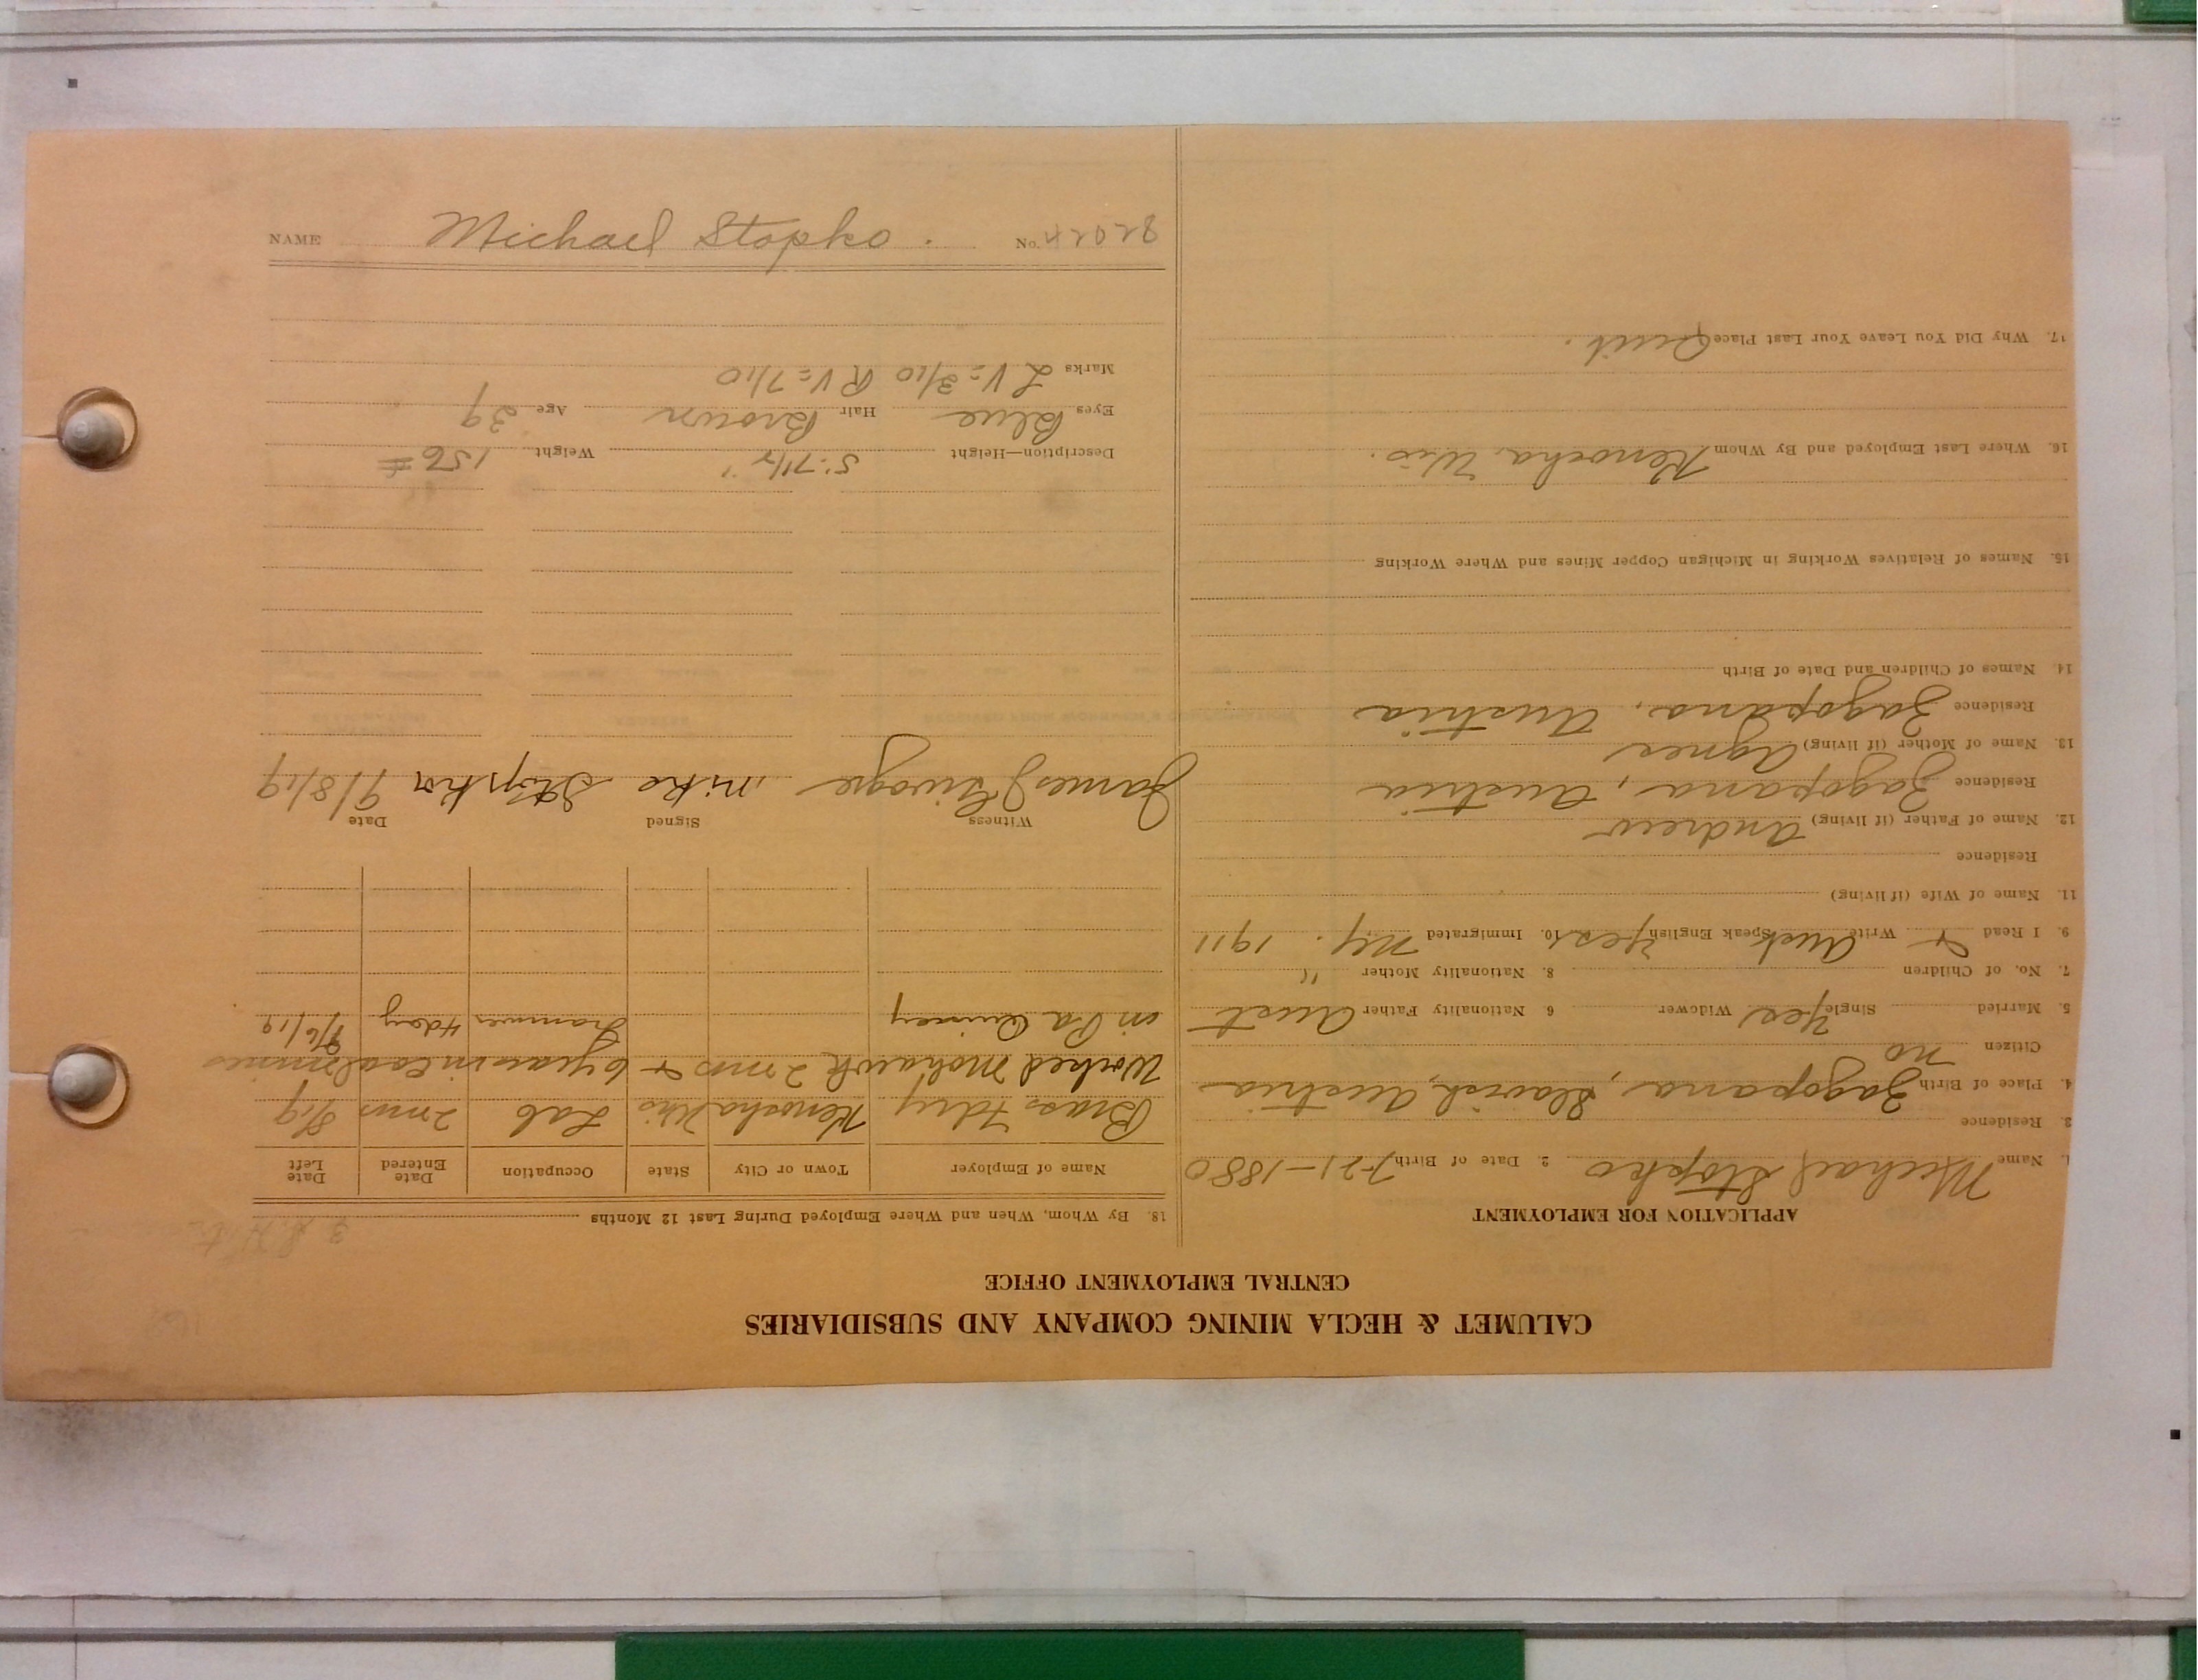 CALUMET & HECLA MINING COMPANY AND SUBSIDIARIES
CENTRAL EMPLOYMENT OFFICE
APPLICATION FOR EMPLOYMENT
1. Name Michael Stopko 2. Date of Birth 7-21-1880
3. Residence
4. Place of Birth Zagopana, Slavish, Austria
Citizen no
5. Married Single Yes Widower 6 Nationality Father Aust
7. No. of Children 8. Nationality Mother "
9. I Read & Write Aust Speak English Yes 10. Immigrated N.Y. 1911
11. Name of Wife (if living)
Residence
12. Name of Father (if living) Andrew
Residence Zagopana, Austria
13. Name of Mother (if living) Agnes
Residence Zagopana, Austria
14. Names of Children and Date of Birth
15. Names of Relatives Working in Michigan Copper Mines and Where Working
16. Where Last Employed and By Whom Kenosha Wis.
17. Why Did You Leave Your Last Place Quit.
18. By Whom, When and Where Employed During Last 12 Months
Name of Employer Town or City State Occupation Date Entered Date Left
Brass Fdry Kenosha Wis Lab 2 mos 8/19
Worked Mohawk 2 mos & 6 years in Coal mines
in Pa Quincy Trammer 4 day 9/6/19
Witness Signed Date
James J mike Stopka 9/8/19
Description—Height 5:7½" Weight 156#
Eyes Blue Hair Brown Age 39
Marks L V=3/10 R V=7/10
NAME Michael Stopko. No.